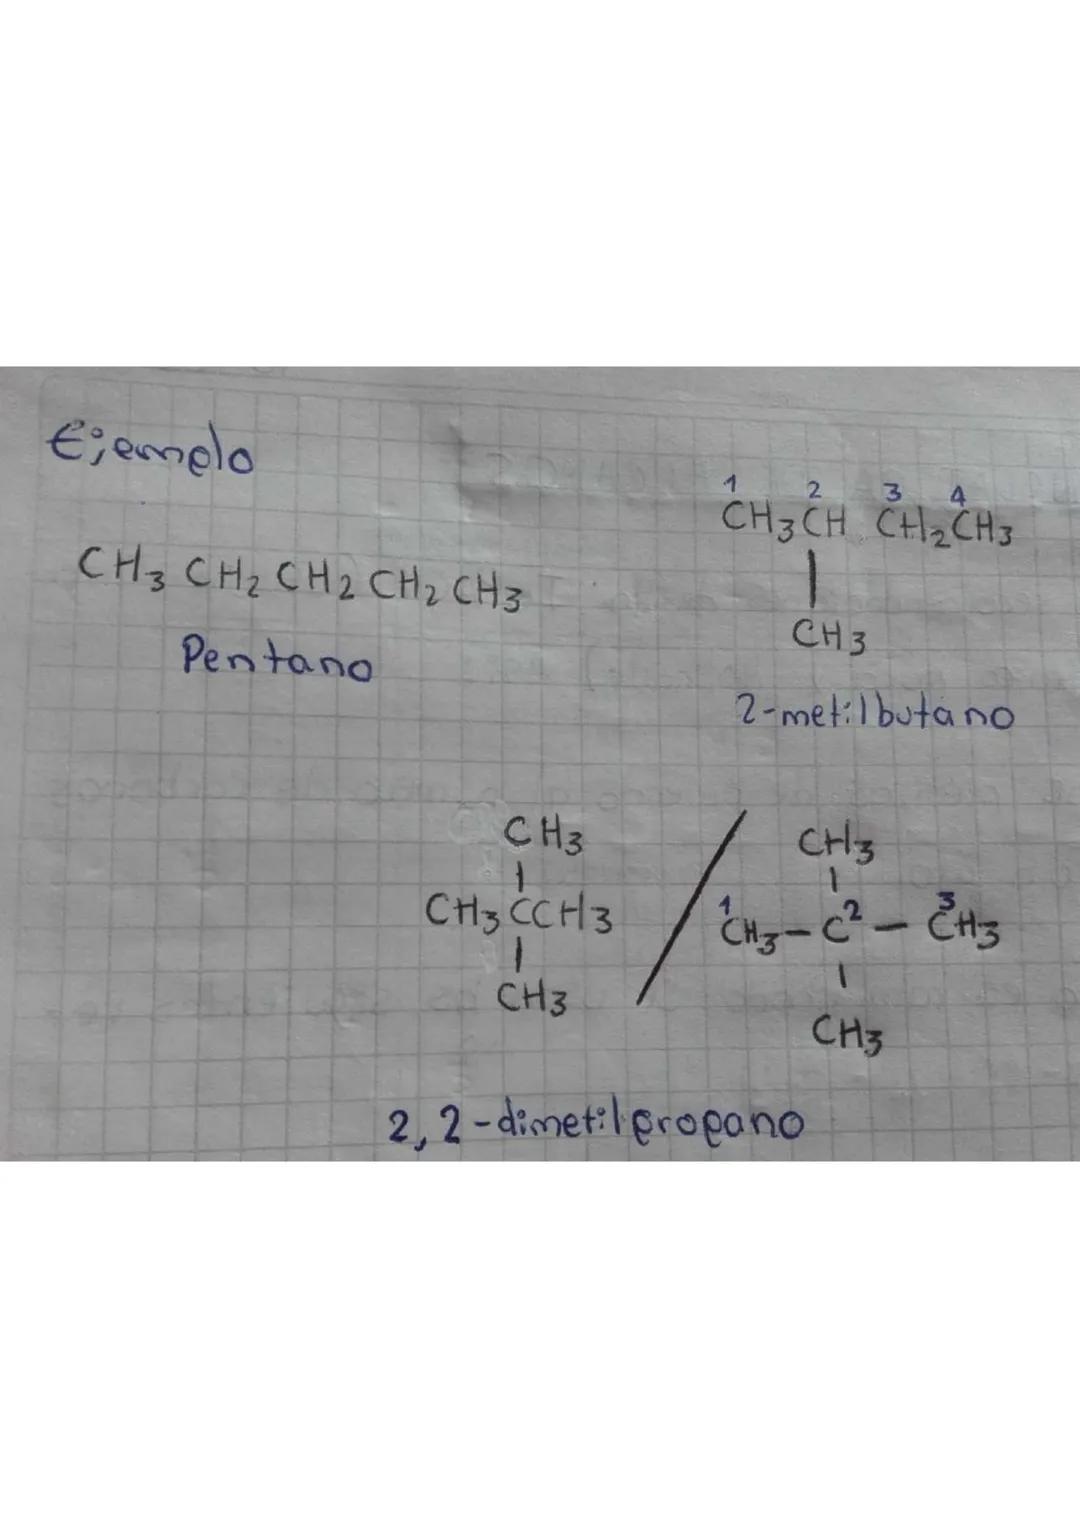 Ejemplo
CH3 CH2 CH2 CH2 CH3
Pentano
1 2 3 4
CH3CH CH2CH3
|
CH3
2-metilbutano
CH3
|
CH3CCH3
|
CH3
/
CH3
|
1 2 3
CH3-C-CH3
|
CH3
2,2-dimetilpropano